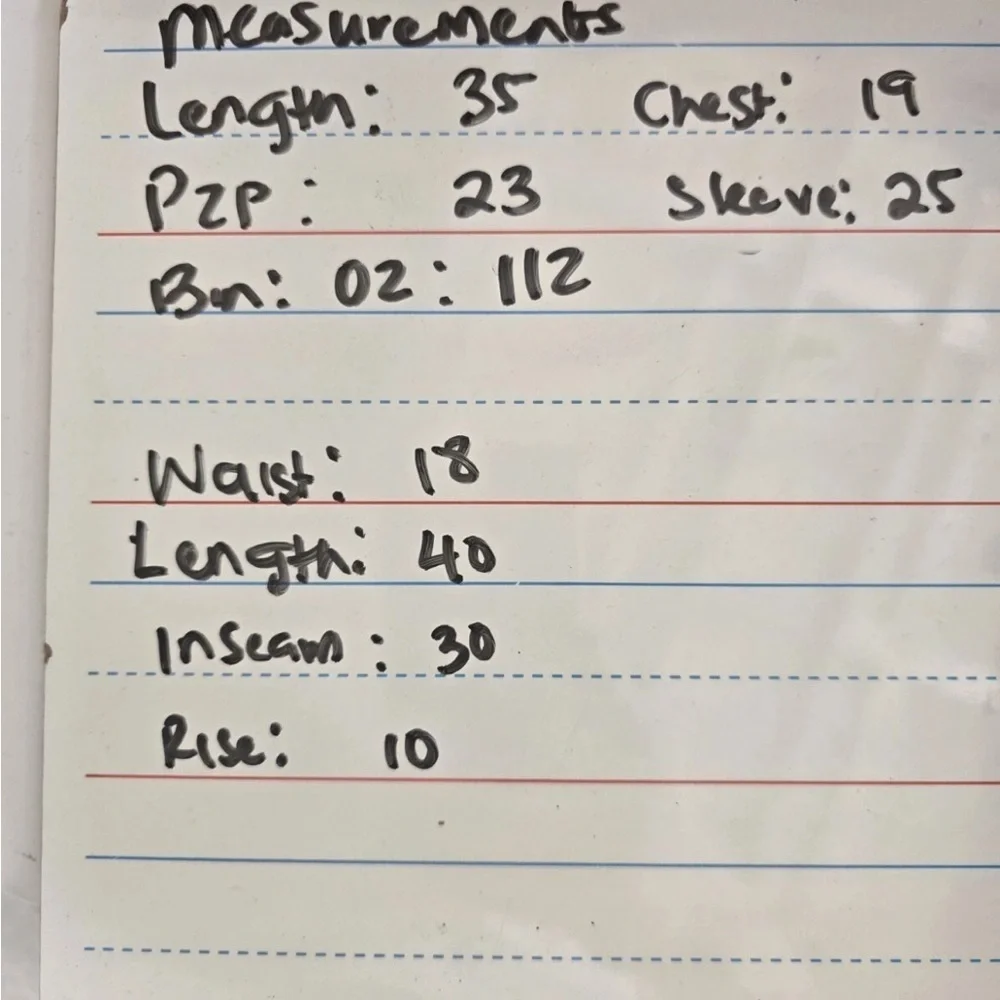 Measurements
Length: 35 Chest: 19
P2P: 23 Sleeve: 25
Bin: 02: 112
Waist: 18
Length: 40
Inseam: 30
Rise: 10